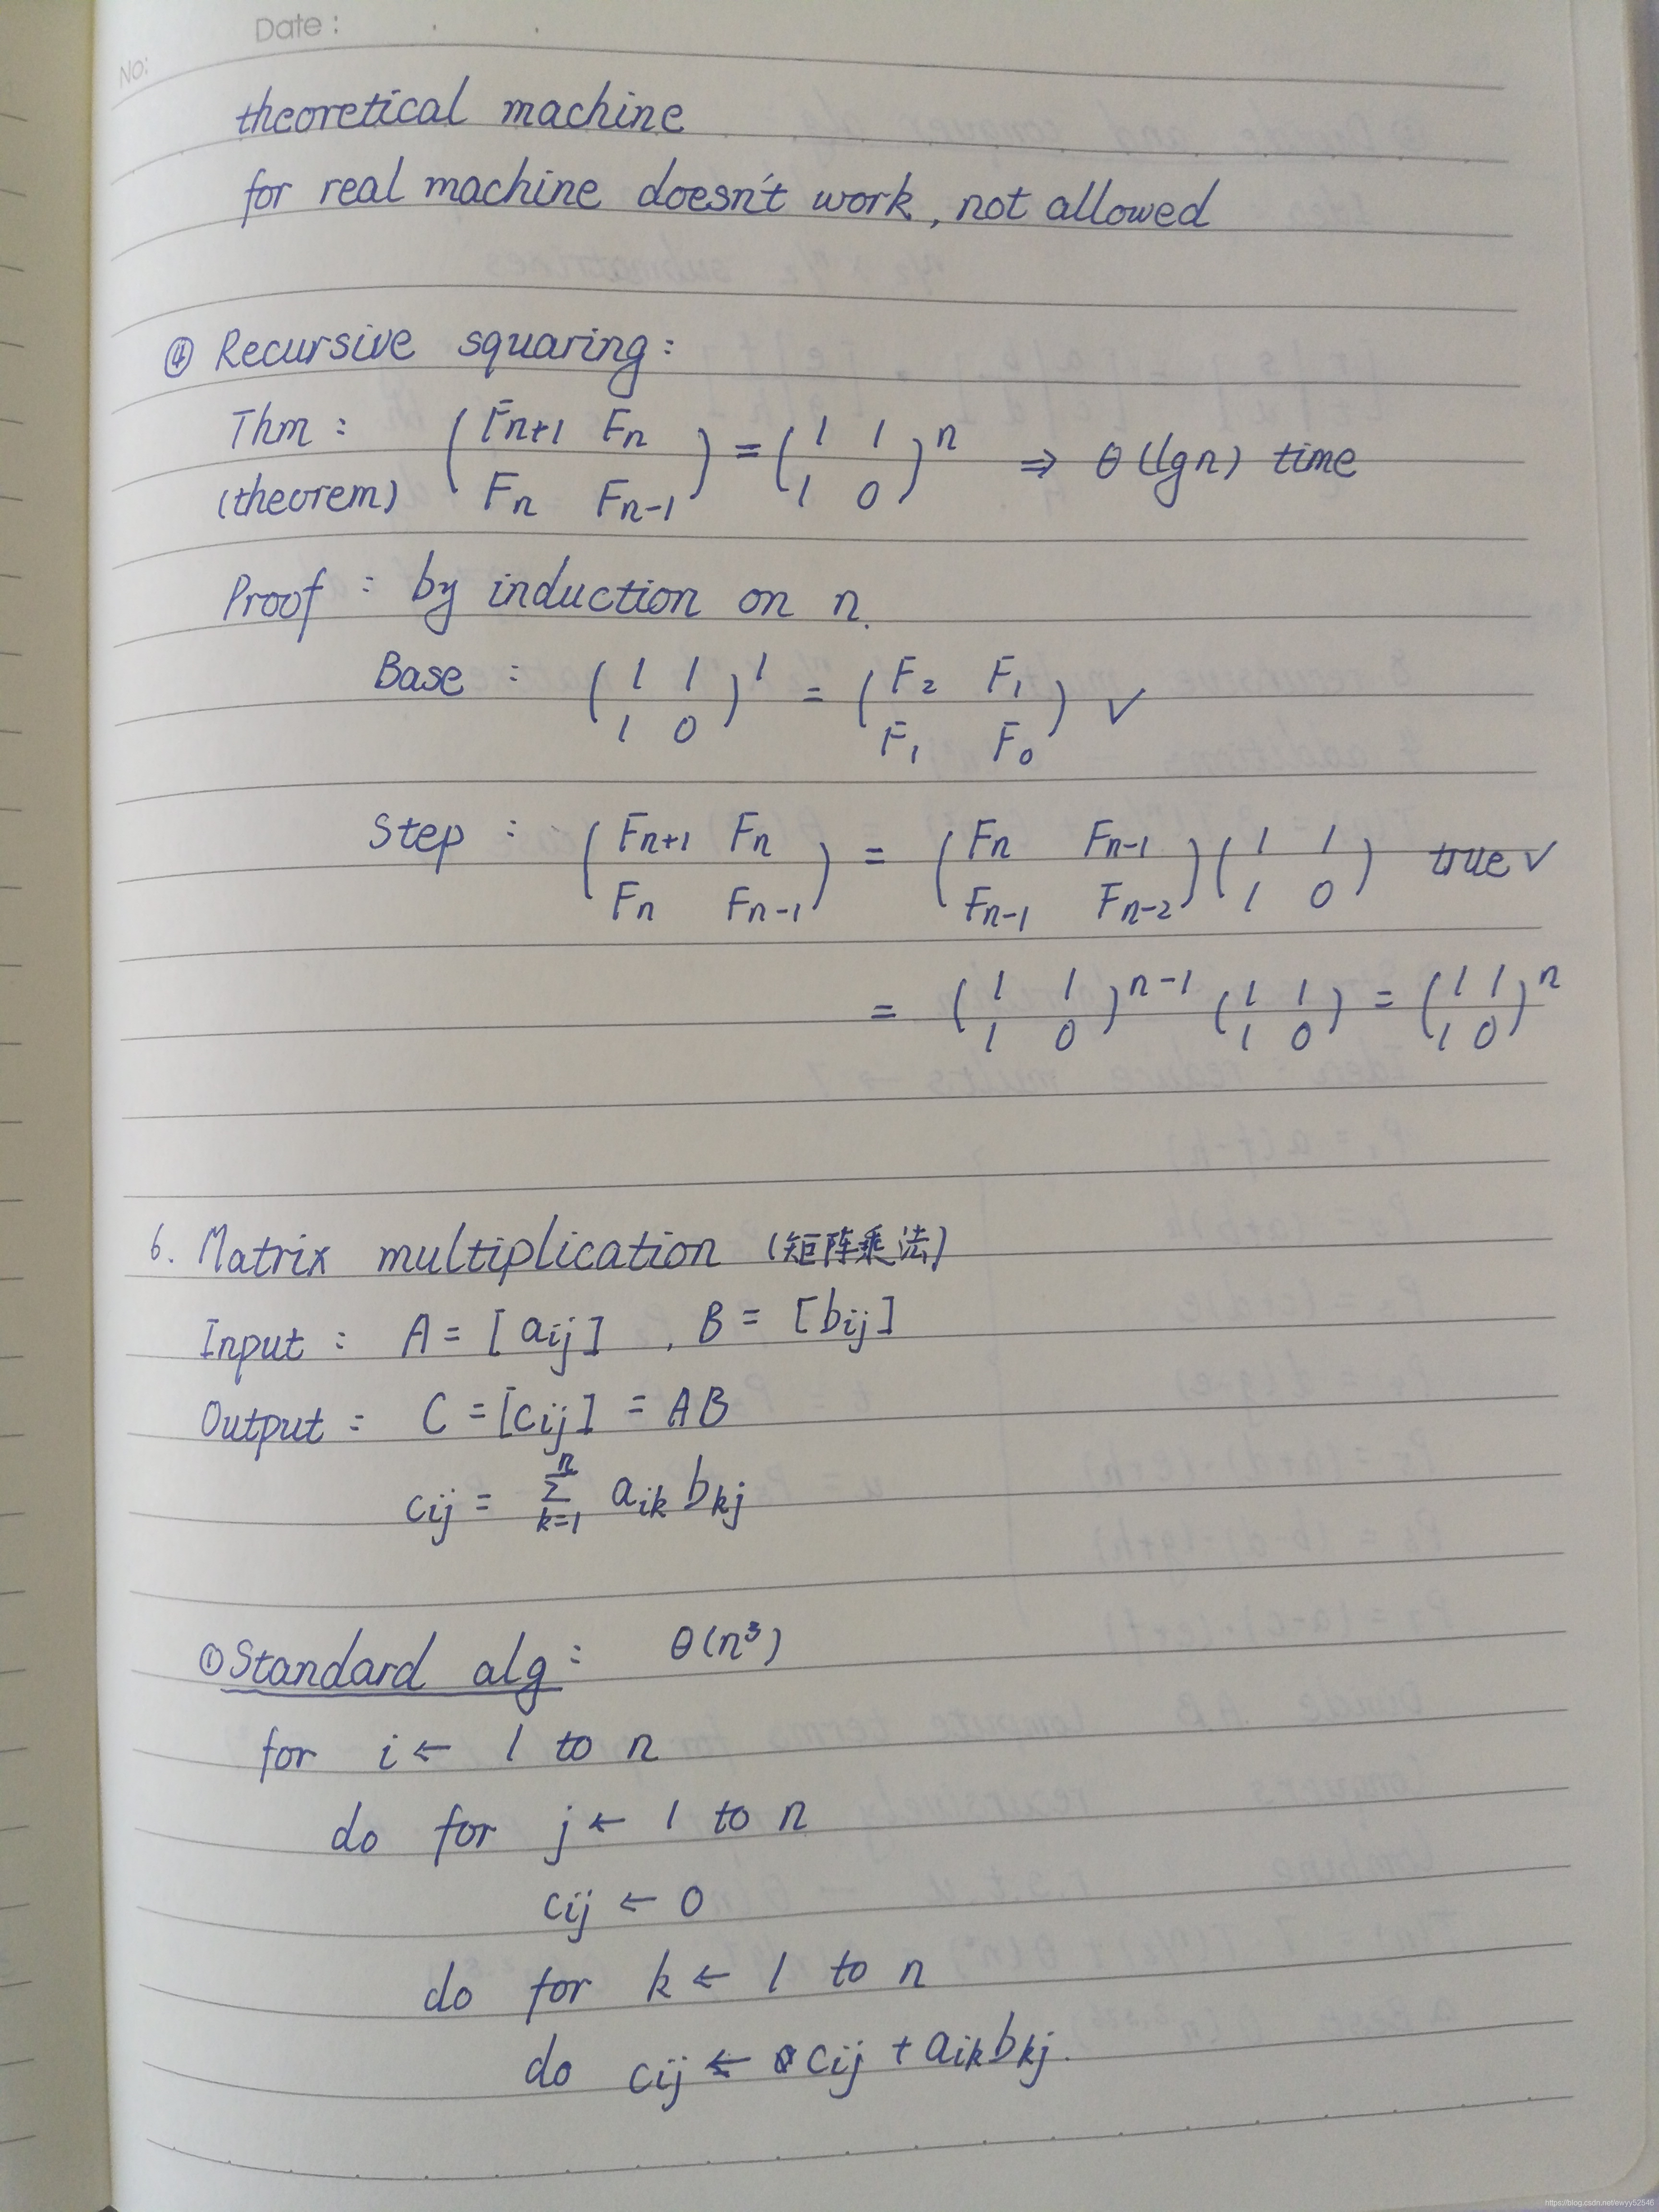 Date :
No:
theoretical machine
for real machine doesn't work, not allowed
④ Recursive squaring :
Thm : (theorem) ( Fn+1 Fn ; Fn Fn-1 ) = ( 1 1 ; 1 0 )^n ⇒ θ(lgn) time
Proof : by induction on n.
Base : ( 1 1 ; 1 0 )^1 = ( F2 F1 ; F1 F0 ) ✓
Step : ( Fn+1 Fn ; Fn Fn-1 ) = ( Fn Fn-1 ; Fn-1 Fn-2 ) ( 1 1 ; 1 0 ) true ✓
= ( 1 1 ; 1 0 )^n-1 ( 1 1 ; 1 0 ) = ( 1 1 ; 1 0 )^n
6. Matrix multiplication (矩阵乘法)
Input : A = [aij] , B = [bij]
Output : C = [cij] = AB
cij = Σ k=1 n aik bkj
① Standard alg : θ(n³)
for i ← 1 to n
do for j ← 1 to n
cij ← 0
do for k ← 1 to n
do cij ← cij + aikbkj.
https://blog.csdn.net/ewyy52546